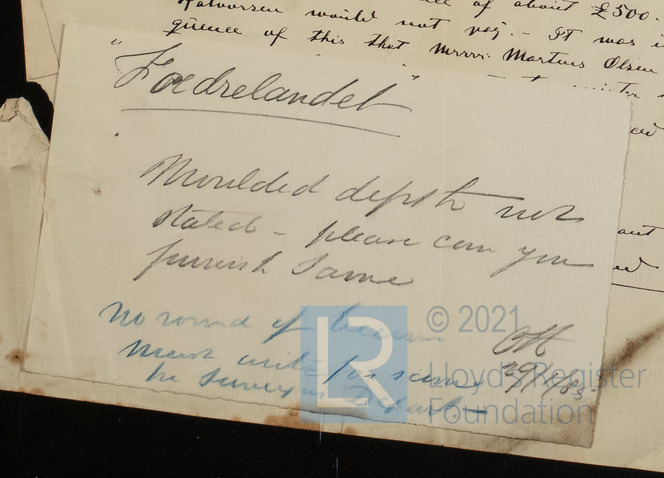 of about £500.
Halvorsen would not pay. - It was
quence of this that Messrs: Martens Olsen
"Foedrelandet"
Moulded depth not
stated - please can you
furnish same
No round of beam
must write for same
OH
29/1/85
LR
© 2021
Lloyd's Register
Foundation